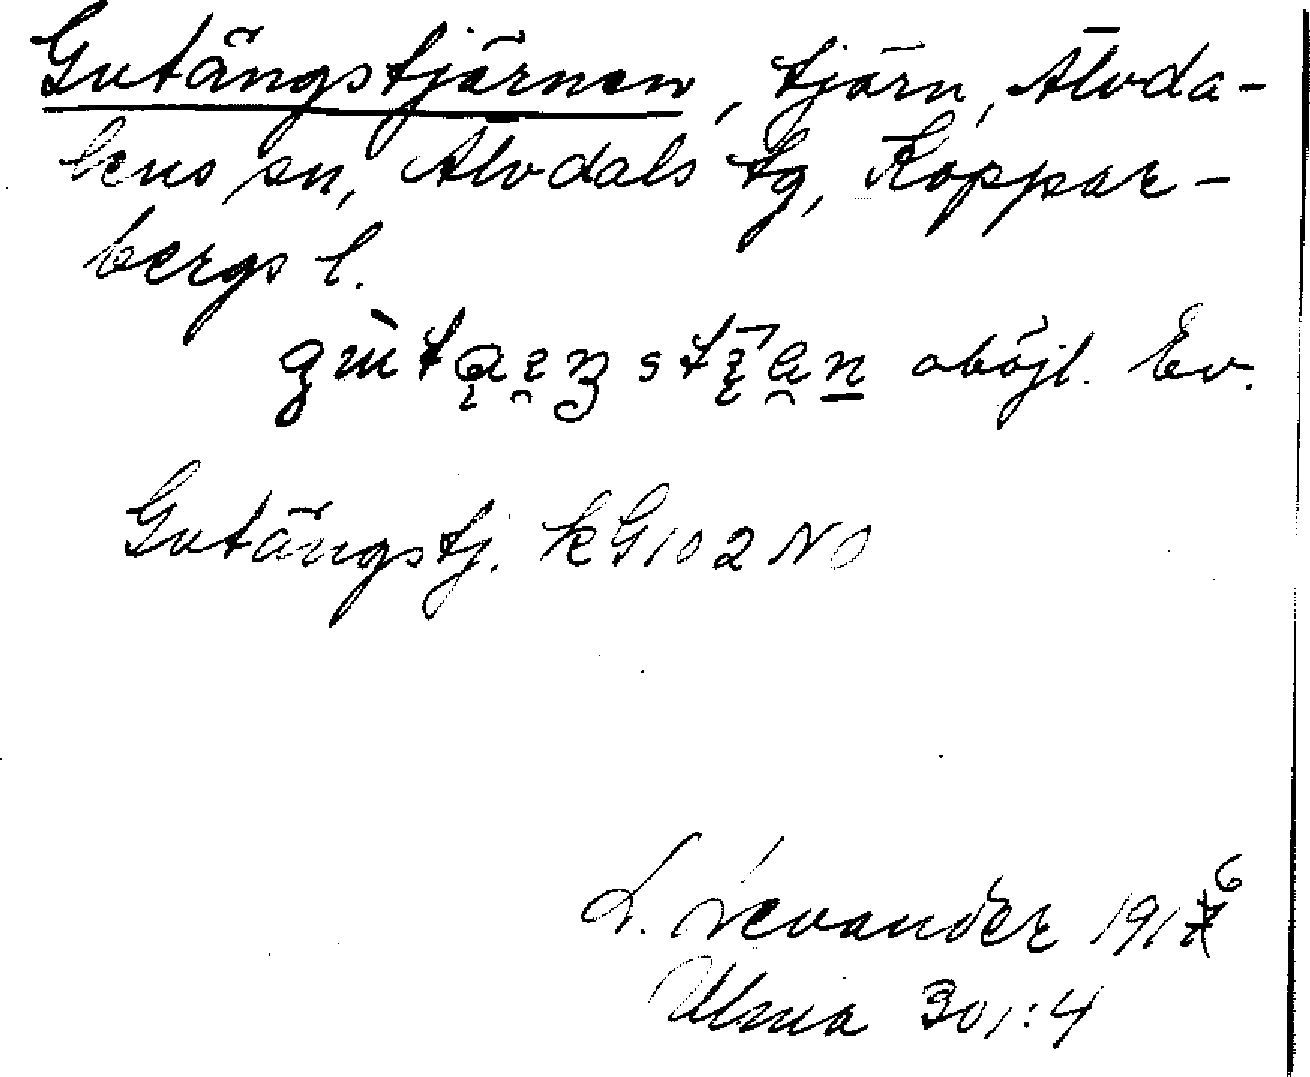 Gutängstjärnen, tjärn, Älvda-
lens sn, Älvdals tg, Koppar-
bergs l.
oböjl. Ev.
Gutängstj. KG 102 NO
L. Levander 1916
Ulma 301:4